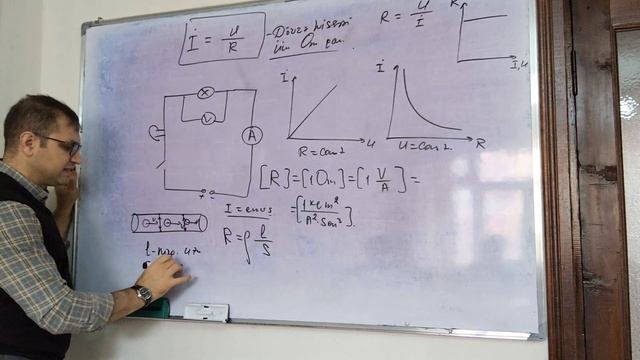 İ = U/R - Dövrə hissəsi
üçün Om qan.
R = U/İ
R
I, U
X
V
A
İ
U
R = const
İ
R
U = const
[R] = [1 Om] = [1 V/A] =
= [1 kq m²/A² · san³].
I = envs
R = ρ l/S